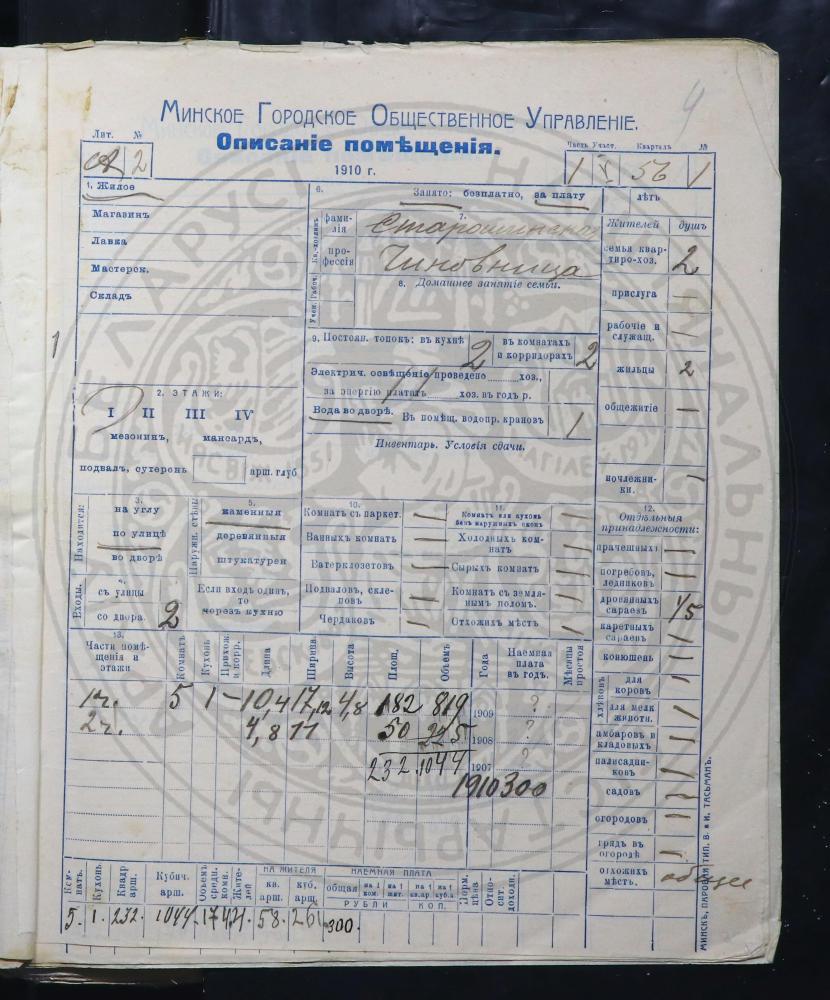 4
Минское Городское Общественное Управленіе.
Описаніе помѣщенія.
1910 г.
Лит. №
А 2
Часть Участ. Кварталъ №
1 I 56 1
1. Жилое
Магазинъ
Лавка
Мастерск.
Складъ
1
2. ЭТАЖИ:
I II III IV
мезонинъ, мансардъ,
подвалъ, сутерень арш. глуб
6. Занято: безплатно, за плату лѣтъ
Кв.-хозяинъ
фамилія
7.
профессія
Чиновница
Учен. Рабоч.
8. Домашнее занятіе семьи.
9. Постоян. топокъ: въ кухнѣ 2 въ комнатахъ и корридорахъ 2
Электрич. освѣщеніе проведено хоз.,
за энергію платилъ хоз. въ годъ р.
Вода во дворѣ. Въ помѣщ. водопр. крановъ 1
Инвентарь. Условія сдачи.
Жителей душъ
семья квартиро-хоз. 2
прислуга 1
рабочіе и служащ. 1
жильцы 2
общежитіе 1
ночлежники.
12. Отдѣльныя принадлежности:
прачешныхъ
погребовъ, ледниковъ
дровяныхъ сараевъ 1/5
каретныхъ сараевъ
конюшень
хлѣвовъ
для коровъ
для мелк животн.
амбаровъ и кладовыхъ
палисадниковъ
садовъ
огородовъ
грядъ въ огородѣ
отхожихъ мѣстъ. общее
Находится:
3.
на углу
по улицѣ
во дворѣ
Наружн. стѣны
5.
каменныя
деревянныя
штукатурен
Входы.
4.
съ улицы
со двора. 2
Если входъ одинъ, то черезъ кухню
10.
Комнатъ съ паркет.
Ванныхъ комнатъ
Ватерклозетовъ
Подваловъ, склеповъ
Чердаковъ
11.
Комнатъ или кухонь безъ наружныхъ оконъ
Холодныхъ комнатъ
Сырыхъ комнатъ
Комнатъ съ землянымъ поломъ.
Отхожихъ мѣстъ
13.
Части помѣщенія и этажи Комнатъ Кухонь Прихож. и корр. Длина Ширина Высота Площ. Объемъ Года Наемная плата въ годъ. Мѣсяцы простоя
1ч. 5 1 – 10,4 17,12 4,8 182 819 1909 ?
2ч. 4,8 11 50 225 1908 ?
232 1044 1907 ?
1910 300
Комнатъ. Кухонь Квадр арш. Кубич. арш. Объемъ средн. комн. Жителей НА ЖИТЕЛЯ кв. арш. куб. арш. НАЕМНАЯ ПЛАТА общая на 1 ком на 1 жит. на 1 кв.ар на 1 куб.а РУБЛИ КОП. Норм. цѣна Относит. доходн.
5. 1. 232. 1044. 174 4. 58. 261 300.
МИНСКЪ, ПАРОВАЯ ТИП. В. и И. ТАСЬМАНЪ.